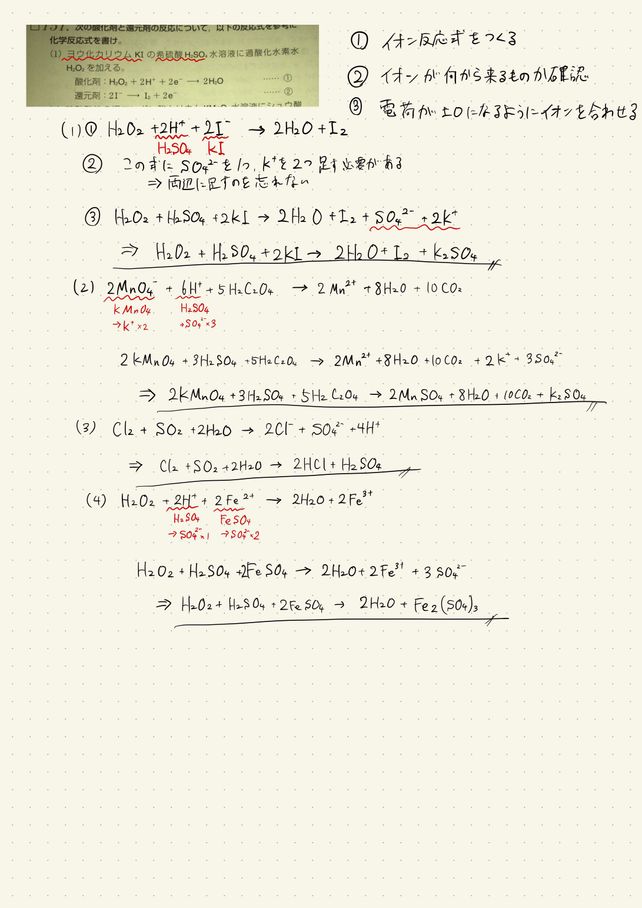 □137. 次の酸化剤と還元剤の反応について、以下の反応式を参考に
化学反応式を書け。
(1) ヨウ化カリウム KI の希硫酸 H₂SO₄ 水溶液に過酸化水素水
H₂O₂ を加える。
酸化剤：H₂O₂ + 2H⁺ + 2e⁻ ⟶ 2H₂O ……①
還元剤：2I⁻ ⟶ I₂ + 2e⁻ ……②
① イオン反応式をつくる
② イオンが何から来るものか確認
③ 電荷が±0になるようにイオンを合わせる
(1)① H₂O₂ + 2H⁺ + 2I⁻ → 2H₂O + I₂
H₂SO₄ KI
② この式に SO₄²⁻ を1つ, K⁺を2つ足す必要がある
⇒ 両辺に足すのを忘れない
③ H₂O₂ + H₂SO₄ + 2KI → 2H₂O + I₂ + SO₄²⁻ + 2K⁺
⇒ H₂O₂ + H₂SO₄ + 2KI → 2H₂O + I₂ + K₂SO₄
(2) 2MnO₄⁻ + 6H⁺ + 5H₂C₂O₄ → 2Mn²⁺ + 8H₂O + 10CO₂
KMnO₄ H₂SO₄
→K⁺×2 +SO₄²⁻×3
2KMnO₄ + 3H₂SO₄ + 5H₂C₂O₄ → 2Mn²⁺ + 8H₂O + 10CO₂ + 2K⁺ + 3SO₄²⁻
⇒ 2KMnO₄ + 3H₂SO₄ + 5H₂C₂O₄ → 2MnSO₄ + 8H₂O + 10CO₂ + K₂SO₄
(3) Cl₂ + SO₂ + 2H₂O → 2Cl⁻ + SO₄²⁻ + 4H⁺
⇒ Cl₂ + SO₂ + 2H₂O → 2HCl + H₂SO₄
(4) H₂O₂ + 2H⁺ + 2Fe²⁺ → 2H₂O + 2Fe³⁺
H₂SO₄ FeSO₄
→SO₄²⁻×1 →SO₄²⁻×2
H₂O₂ + H₂SO₄ + 2FeSO₄ → 2H₂O + 2Fe³⁺ + 3SO₄²⁻
⇒ H₂O₂ + H₂SO₄ + 2FeSO₄ → 2H₂O + Fe₂(SO₄)₃